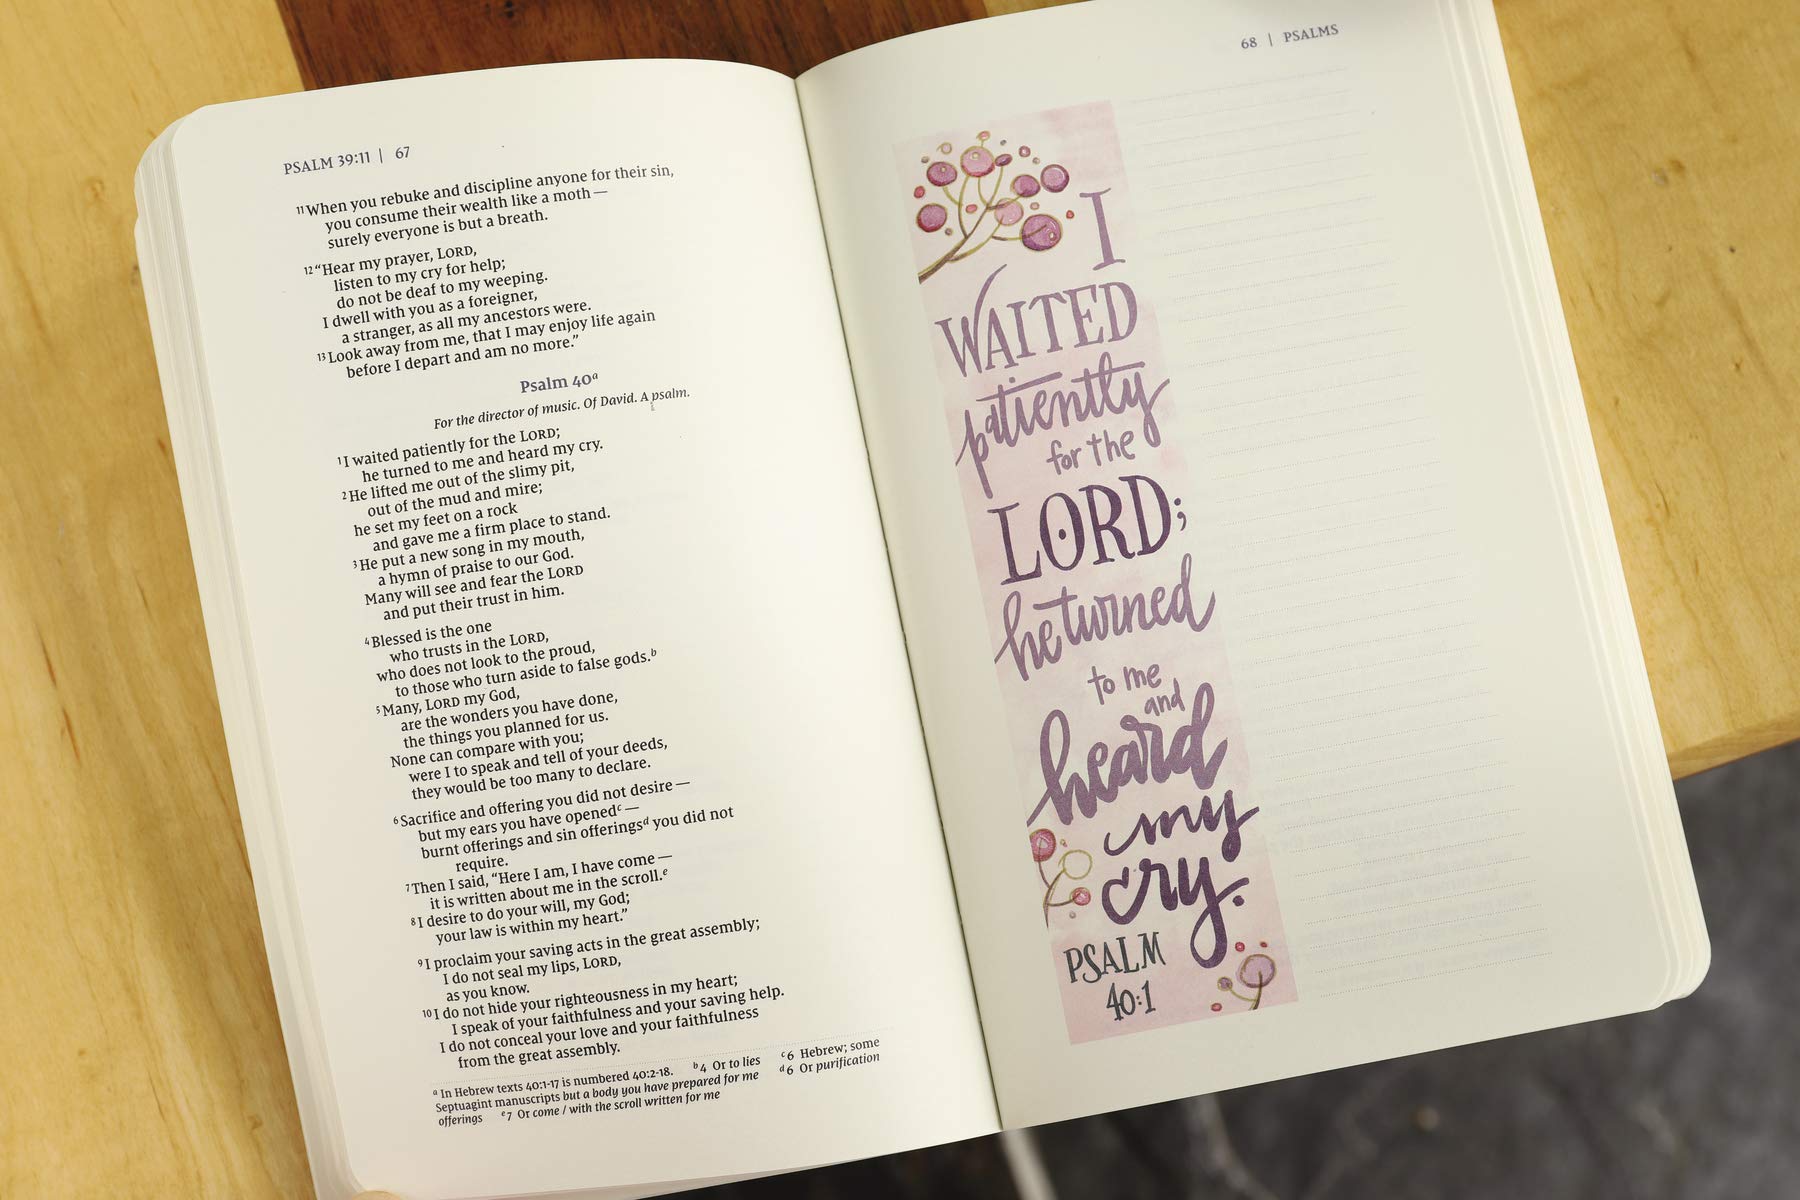 PSALM 39:11 | 67
11 When you rebuke and discipline anyone for their sin,
you consume their wealth like a moth —
surely everyone is but a breath.
12 “Hear my prayer, LORD,
listen to my cry for help;
do not be deaf to my weeping.
I dwell with you as a foreigner,
a stranger, as all my ancestors were.
13 Look away from me, that I may enjoy life again
before I depart and am no more.”
Psalm 40a
For the director of music. Of David. A psalm.
1 I waited patiently for the LORD;
he turned to me and heard my cry.
2 He lifted me out of the slimy pit,
out of the mud and mire;
he set my feet on a rock
and gave me a firm place to stand.
3 He put a new song in my mouth,
a hymn of praise to our God.
Many will see and fear the LORD
and put their trust in him.
4 Blessed is the one
who trusts in the LORD,
who does not look to the proud,
to those who turn aside to false gods.b
5 Many, LORD my God,
are the wonders you have done,
the things you planned for us.
None can compare with you;
were I to speak and tell of your deeds,
they would be too many to declare.
6 Sacrifice and offering you did not desire —
but my ears you have openedc —
burnt offerings and sin offeringsd you did not
require.
7 Then I said, “Here I am, I have come —
it is written about me in the scroll.e
8 I desire to do your will, my God;
your law is within my heart.”
9 I proclaim your saving acts in the great assembly;
I do not seal my lips, LORD,
as you know.
10 I do not hide your righteousness in my heart;
I speak of your faithfulness and your saving help.
I do not conceal your love and your faithfulness
from the great assembly.
a In Hebrew texts 40:1-17 is numbered 40:2-18. b 4 Or to lies c 6 Hebrew; some
Septuagint manuscripts but a body you have prepared for me d 6 Or purification
offerings e 7 Or come / with the scroll written for me
68 | PSALMS
I
WAITED
patiently
for the
LORD;
he turned
to me
and
heard
my
cry.
PSALM
40:1